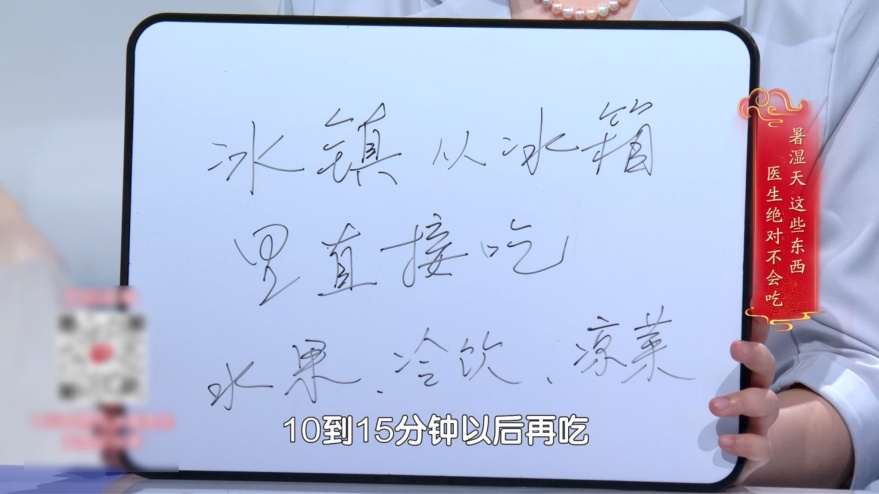 冰镇从冰箱
里直接吃
水果、冷饮、凉菜
暑湿天 这些东西
医生绝对不会吃
10到15分钟以后再吃